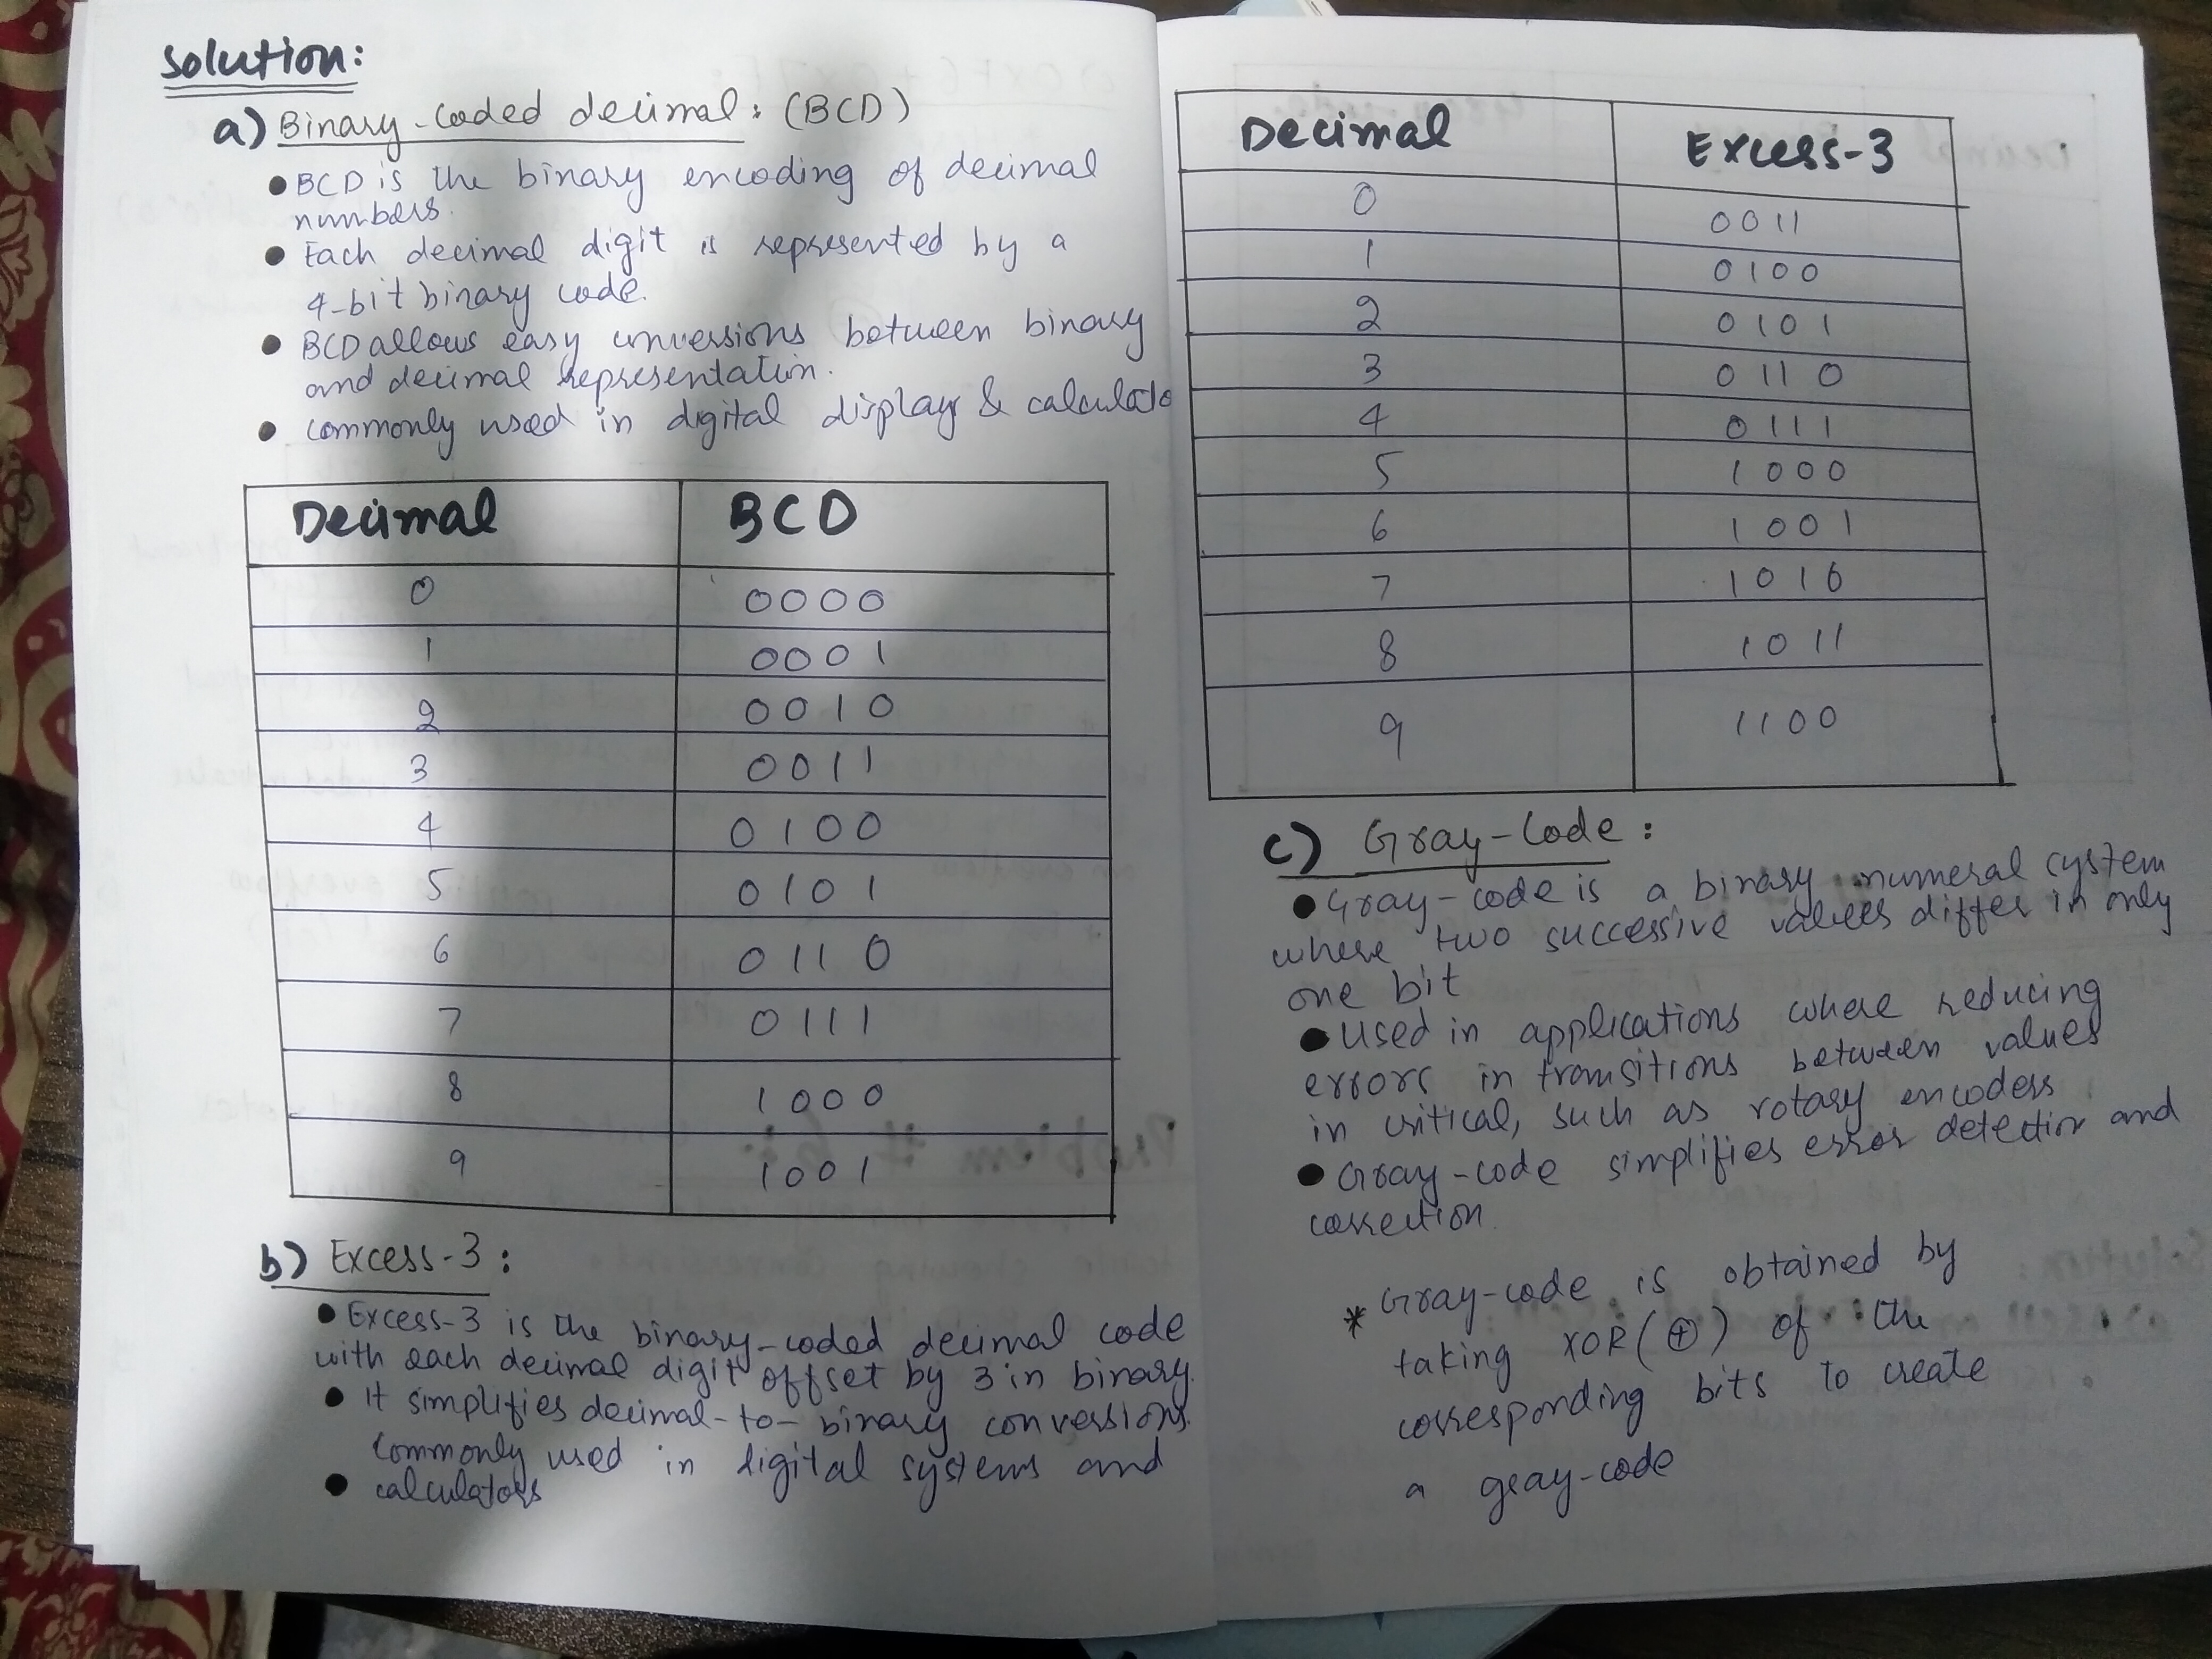 Solution:
a) Binary-Coded decimal: (BCD)
● BCD is the binary encoding of decimal
numbers.
● Each decimal digit is represented by a
4-bit binary code.
● BCD allows easy conversions between binary
and decimal representation.
● commonly used in digital displays & calculato
Decimal BCD
0 0000
1 0001
2 0010
3 0011
4 0100
5 0101
6 0110
7 0111
8 1000
9 1001
b) Excess-3:
● Excess-3 is the binary-coded decimal code
with each decimal digit offset by 3 in binary.
● It simplifies decimal-to-binary conversions.
commonly used in digital systems and
● calculators
Decimal Excess-3
0 0011
1 0100
2 0101
3 0110
4 0111
5 1000
6 1001
7 1010
8 1011
9 1100
c) Gray-Code:
● Gray-code is a binary numeral system
where two successive values differ in only
one bit
● Used in applications where reducing
errors in transitions between values
in critical, such as rotary encoders
● Gray-code simplifies error detection and
correction.
* Gray-code is obtained by
taking XOR(⊕) of the
corresponding bits to create
a gray-code